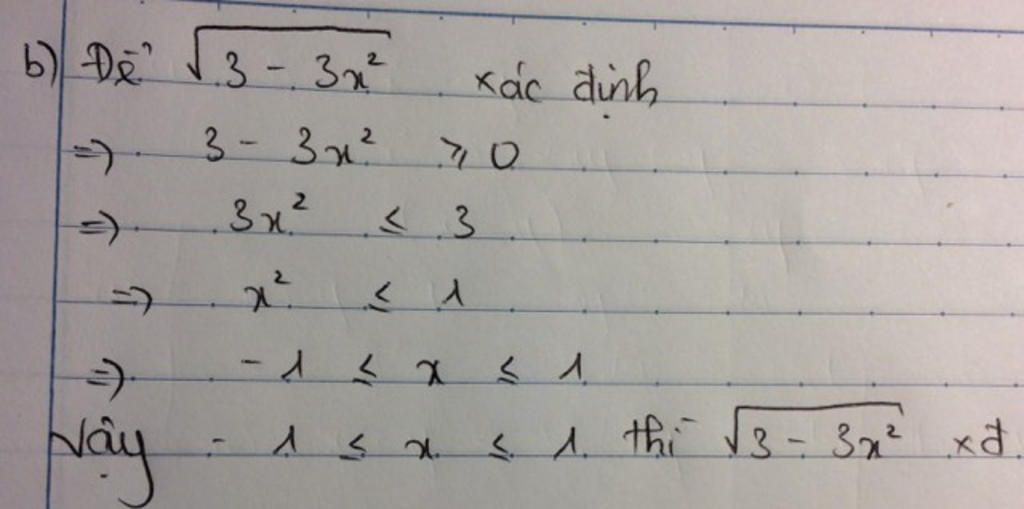 b) Để √(3 - 3x²) xác định
=> 3 - 3x² ⩾ 0
=> 3x² ≤ 3
=> x² ≤ 1
=> -1 ≤ x ≤ 1
Vậy -1 ≤ x ≤ 1 thì √(3 - 3x²) xđ.